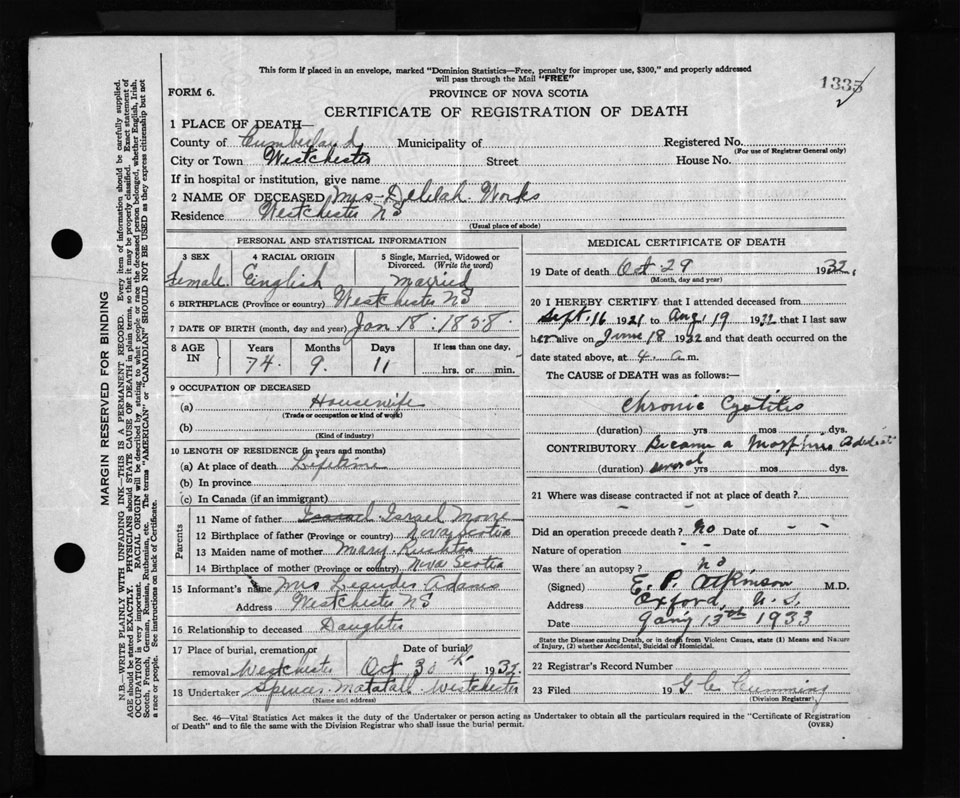 This form if placed in an envelope, marked "Dominion Statistics—Free, penalty for improper use, $300," and properly addressed
will pass through the Mail "FREE"
1335
2
FORM 6.
PROVINCE OF NOVA SCOTIA
CERTIFICATE OF REGISTRATION OF DEATH
1 PLACE OF DEATH—
County of Cumberland Municipality of Registered No.
(For use of Registrar General only)
City or Town Westchester Street House No.
If in hospital or institution, give name
2 NAME OF DECEASED Mrs Delilah Works
Residence Westchester NS
(Usual place of abode)
PERSONAL AND STATISTICAL INFORMATION
3 SEX 4 RACIAL ORIGIN 5 Single, Married, Widowed or
Divorced. (Write the word)
Female English Married
6 BIRTHPLACE (Province or country) Westchester NS
7 DATE OF BIRTH (month, day and year) Jan 18 : 1858.
8 AGE IN Years Months Days If less than one day,
74. 9. 11 hrs. or min.
9 OCCUPATION OF DECEASED
(a) Housewife
(Trade or occupation or kind of work)
(b)
(Kind of industry)
10 LENGTH OF RESIDENCE (in years and months)
(a) At place of death Lifetime
(b) In province
(c) In Canada (if an immigrant)
Parents
11 Name of father Israel Moore
12 Birthplace of father (Province or country) Nova Scotia
13 Maiden name of mother Mary Rushton
14 Birthplace of mother (Province or country) Nova Scotia
15 Informant's name Mrs Leander Adams
Address Westchester, NS
16 Relationship to deceased Daughter
17 Place of burial, cremation or Date of burial
removal Westchester Oct 30 1932.
18 Undertaker Spencer Matatall Westchester
(Name and address)
MEDICAL CERTIFICATE OF DEATH
19 Date of death Oct 29 1932
(Month, day and year)
20 I HEREBY CERTIFY that I attended deceased from
Sept. 16 1921 to Aug. 19 1932 that I last saw
her alive on June 18 1932 and that death occurred on the
date stated above, at 4. a.m.
The CAUSE of DEATH was as follows:—
Chronic Cystitis
(duration) yrs mos dys.
CONTRIBUTORY Became a Morphine Addict
(duration) several yrs mos. dys.
21 Where was disease contracted if not at place of death?
Did an operation precede death? No Date of - -
Nature of operation - -
Was there an autopsy? no
(Signed) E. P. Atkinson M.D.
Address Oxford, N. S.
Date 13th 1933
State the Disease causing Death, or in death from Violent Causes, state (1) Means and Nature
of Injury, (2) whether Accidental, Suicidal or Homicidal.
22 Registrar's Record Number
23 Filed 19 G C Cumming
(Division Registrar)
Sec. 46—Vital Statistics Act makes it the duty of the Undertaker or person acting as Undertaker to obtain all the particulars required in the "Certificate of Registration
of Death" and to file the same with the Division Registrar who shall issue the burial permit. (OVER)
MARGIN RESERVED FOR BINDING
N.B.—WRITE PLAINLY WITH UNFADING INK—THIS IS A PERMANENT RECORD. Every item of information should be carefully supplied.
AGE should be stated EXACTLY. PHYSICIANS should STATE CAUSE OF DEATH in plain terms, so that it may be properly classified. Exact statement of
OCCUPATION is very important. RACIAL ORIGIN will be described by stating to what people or race the deceased person belonged, whether English, Irish,
Scotch, French, German, Russian, Ruthenian, etc. The terms "AMERICAN" or "CANADIAN" SHOULD NOT BE USED as they express citizenship but not
a race or people. See instructions on back of Certificate.